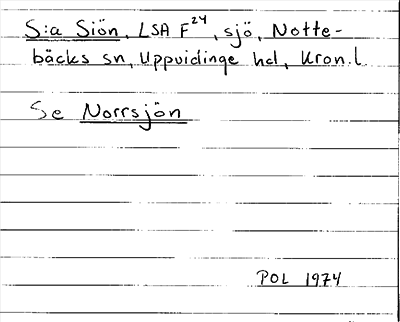 S:a Siön, LSA F²⁴, sjö, Notte-
bäcks sn, Uppvidinge hd, Kron.l.
Se Norrsjön
POL 1974